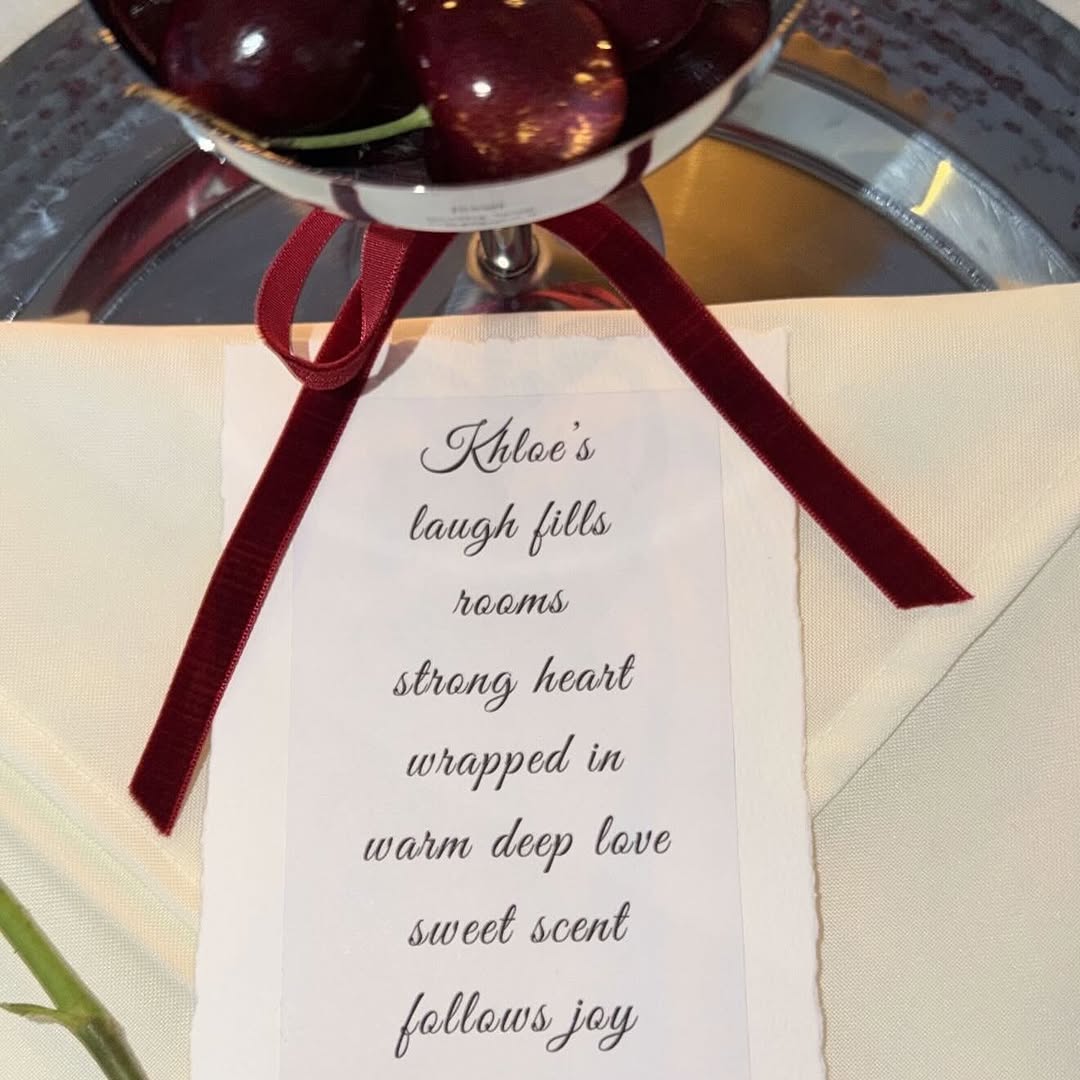 Khloe's
laugh fills
rooms
strong heart
wrapped in
warm deep love
sweet scent
follows joy